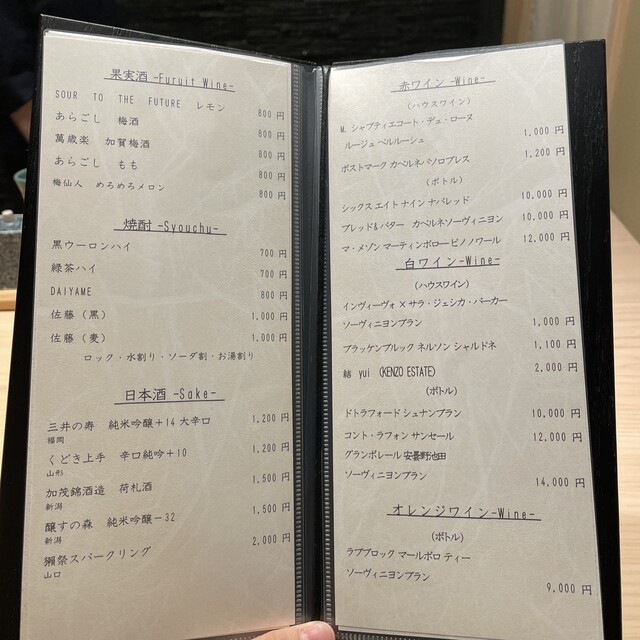 果実酒 -Furuit Wine-
SOUR TO THE FUTURE レモン 800 円
あらごし 梅酒 800 円
萬歳楽 加賀梅酒 800 円
あらごし もも 800 円
梅仙人 めろめろメロン 800 円
焼酎 -Syouchu-
黒ウーロンハイ 700 円
緑茶ハイ 700 円
DAIYAME 800 円
佐藤（黒） 1,000 円
佐藤（麦） 1,000 円
ロック・水割り・ソーダ割・お湯割り
日本酒 -Sake-
三井の寿 純米吟醸＋14 大辛口 1,200 円
福岡
くどき上手 辛口純吟＋10 1,200 円
山形
加茂錦酒造 荷札酒 1,500 円
新潟
醸すの森 純米吟醸－32 1,500 円
新潟
獺祭スパークリング 2,000 円
山口
赤ワイン -Wine-
（ハウスワイン）
M. シャプティエコート・デュ・ローヌ
ルージュ ベルルーシュ 1,000 円
ポストマーク カベルネパソロブレス 1,200 円
（ボトル）
シックス エイト ナイン ナパレッド 10,000 円
ブレッド& バター カベルネソーヴィニヨン 10,000 円
マ・メゾン マーティンボロー ピノ ノワール 12,000 円
白ワイン -Wine-
（ハウスワイン）
インヴィーヴォ × サラ・ジェシカ・パーカー
ソーヴィニヨンブラン 1,000 円
ブラッケンブルック ネルソン シャルドネ 1,100 円
結 yui （KENZO ESTATE） 2,000 円
（ボトル）
ドトラフォード シュナンブラン 10,000 円
コント・ラフォン サンセール 12,000 円
グランポレール 安曇野池田
ソーヴィニヨンブラン 14,000 円
オレンジワイン -Wine-
（ボトル）
ラブブロック マールボロ ティー
ソーヴィニヨンブラン 9,000 円